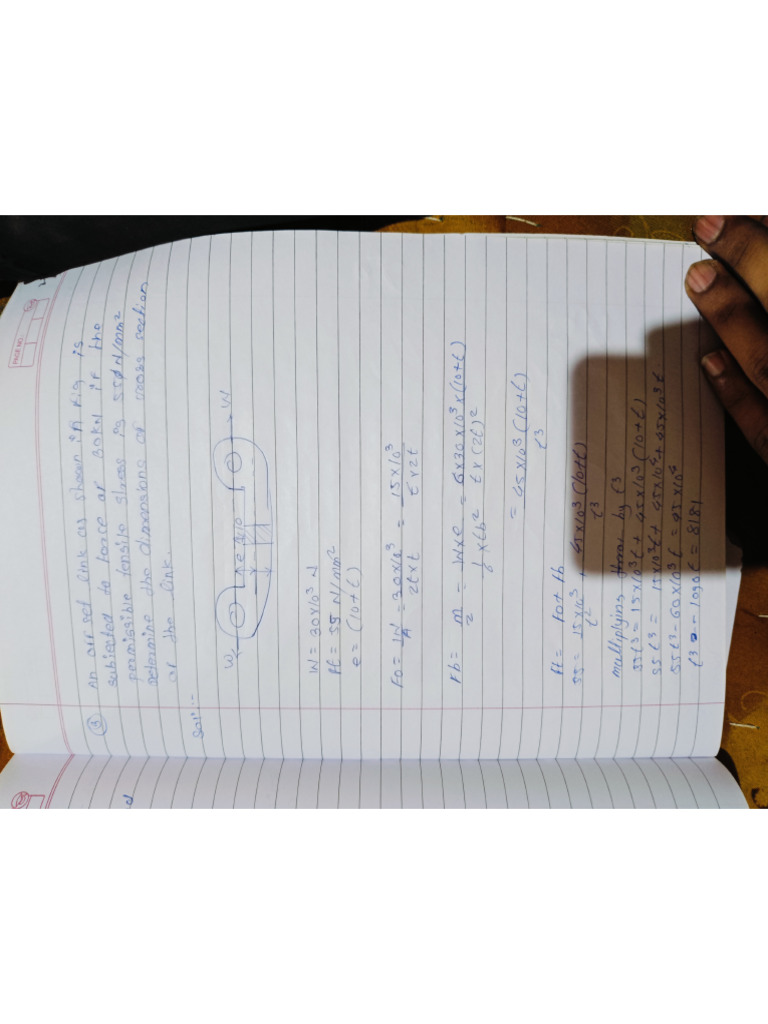 PAGE NO.
③ An offset link as shown in fig is
subjected to force of 30kN if the
permissible tensile stress is 55 N/mm²
determine the dimensions of cross section
of the link.
Soln:-
W
W
W = 30×10³ N
Pt = 55 N/mm²
e = (10+t)
Fo = W/A = 30×10³/2t×t = 15×10³/t×2t
Fb = M/Z = W×e/(1/6×tb²) = 6×30×10³×(10+t)/t×(2t)²
= 45×10³(10+t)/t³
Pt = Fo+Fb
55 = 15×10³/t² + 45×10³(10+t)/t³
multiplying by t³
55t³ = 15×10³t + 45×10³(10+t)
55t³ = 15×10³t + 45×10⁴ + 45×10³t
55t³ - 60×10³t = 45×10⁴
t³ - 1090t = 8181